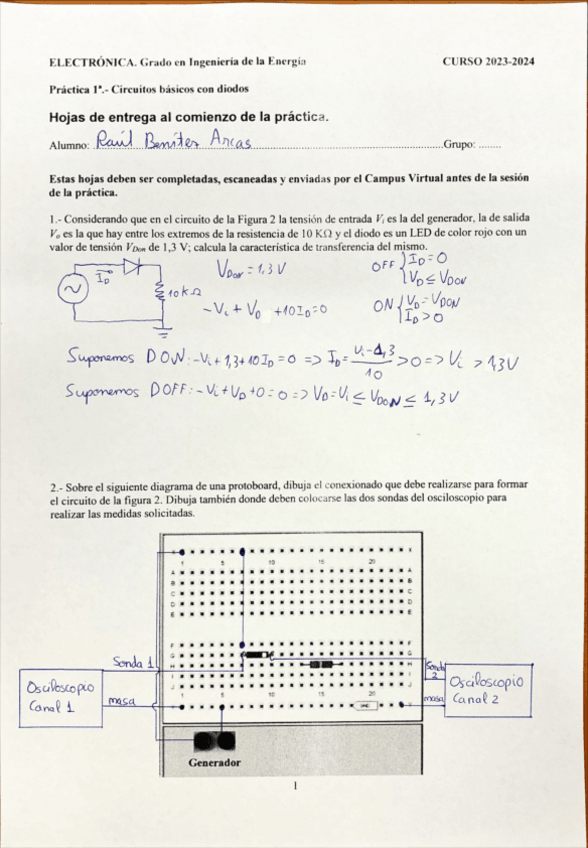 ELECTRÓNICA. Grado en Ingeniería de la Energía CURSO 2023-2024
Práctica 1ª.- Circuitos básicos con diodos
Hojas de entrega al comienzo de la práctica.
Alumno: Raúl Benítez Arcas Grupo: ........
Estas hojas deben ser completadas, escaneadas y enviadas por el Campus Virtual antes de la sesión
de la práctica.
1.- Considerando que en el circuito de la Figura 2 la tensión de entrada Vi es la del generador, la de salida
Vo es la que hay entre los extremos de la resistencia de 10 KΩ y el diodo es un LED de color rojo con un
valor de tensión VDon de 1,3 V; calcula la característica de transferencia del mismo.
ID
10kΩ
VDon = 1,3 V
-Vi + VD + 10ID = 0
OFF { ID = 0
VD ≤ VDON
ON { VD = VDON
ID > 0
Suponemos D ON: -Vi + 1,3 + 10 ID = 0 => ID = (Vi - 1,3)/10 > 0 => Vi > 1,3V
Suponemos D OFF: -Vi + VD + 0 = 0 => VD = Vi ≤ VDON ≤ 1,3 V
2.- Sobre el siguiente diagrama de una protoboard, dibuja el conexionado que debe realizarse para formar
el circuito de la figura 2. Dibuja también donde deben colocarse las dos sondas del osciloscopio para
realizar las medidas solicitadas.
X X
1 5 10 15 20
A A
B B
C C
D D
E E
F F
G G
H H
I I
J J
1 5 10 15 20
Y
Sonda 1
Osciloscopio
Canal 1
masa
Sonda
2
masa
Osciloscopio
Canal 2
Generador
1